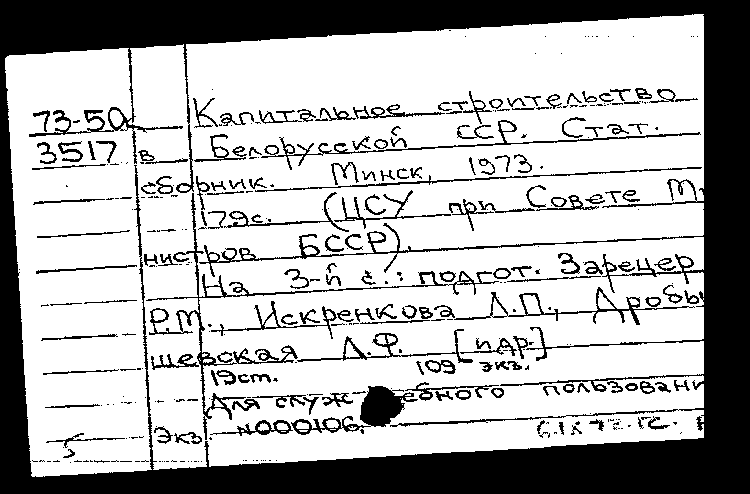 73-50 Капитальное строительство
3517 в Белорусской ССР. Стат.
сборник. Минск, 1973.
179с. (ЦСУ при Совете Ми
нистров БССР).
На 3-й с.: подгот. Зарецер
Р.М., Искренкова Л.П., Дробы
шевская Л.Ф. [и др.]
19ст. 109 экз.
Для служебного пользовани
Экз. №000106.
5